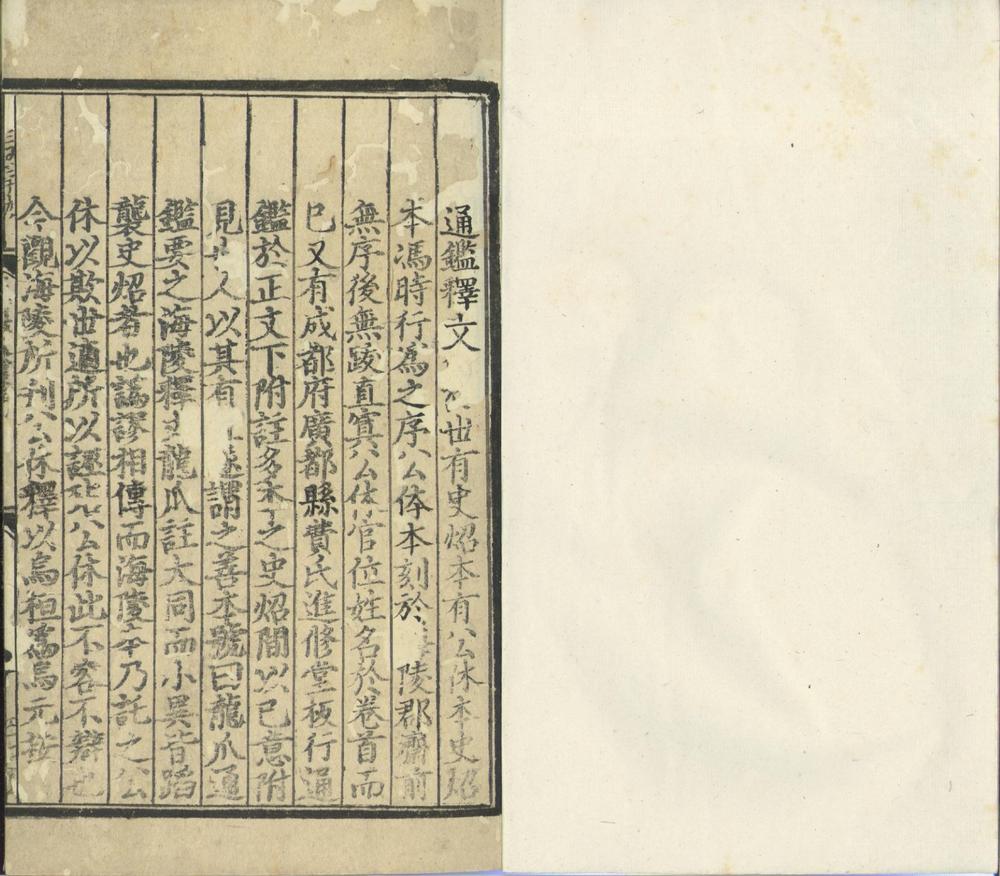 通鑑釋文　世有史炤本有公休本史炤
本馮時行爲之序公休本刻於　陵郡齋前
無序後無跋直寘公休官位姓名於卷首而
已又有成都府廣都縣費氏進修堂板行通
鑑於正文下附註多本之史炤間以己意附
見　人以其有　遂謂之善本號曰龍爪通
鑑要之海陵釋文龍爪註大同而小異皆蹈
襲史炤者也譌謬相傳而海陵本乃託之公
休以欺世適所以誣公休此不容不辯也
今觀海陵所刊公休釋以烏桓爲烏元按